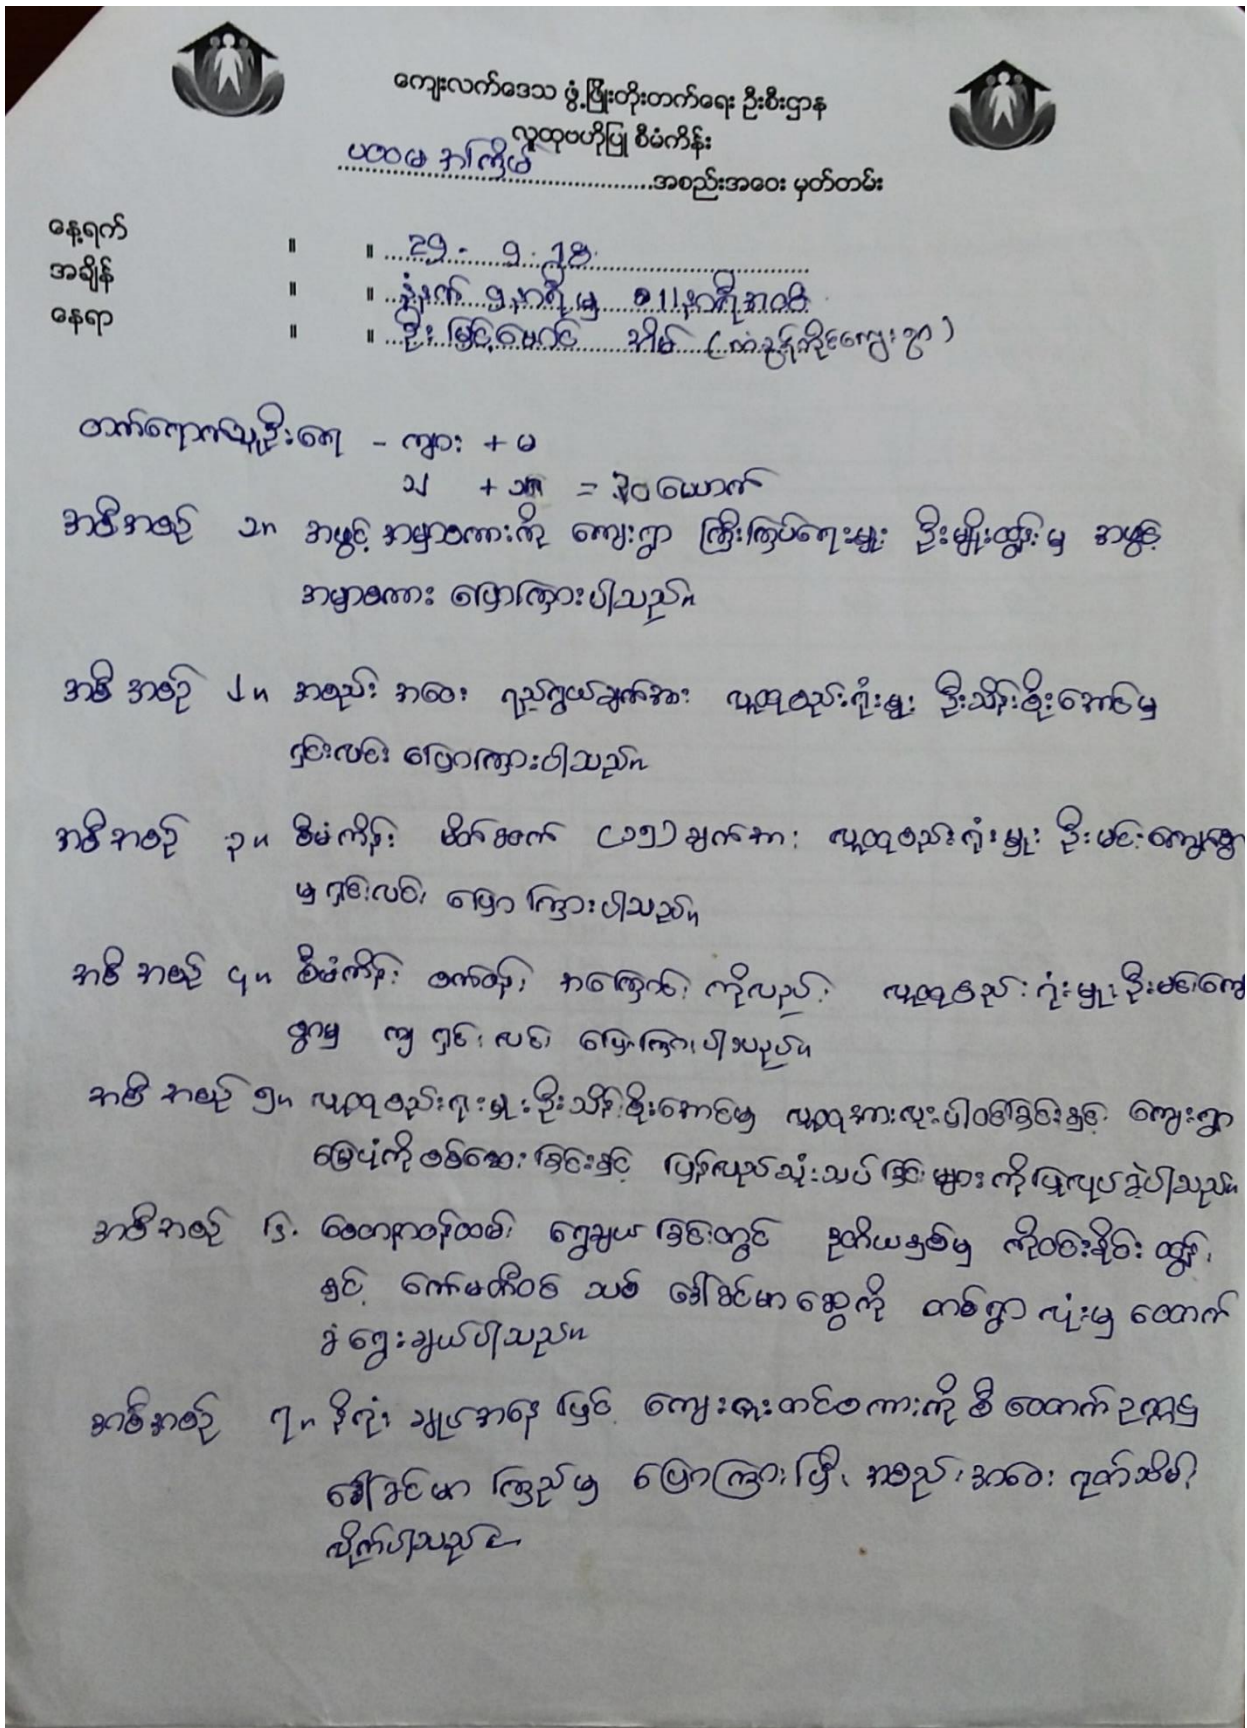 ကျေးလက်ဒေသ ဖွံ့ဖြိုးတိုးတက်ရေး ဦးစီးဌာန
လူထုဗဟိုပြု စီမံကိန်း
ပထမ အကြိမ် အစည်းအဝေး မှတ်တမ်း
နေ့ရက် ။ ။ 29 - 9 - 18
အချိန် ။ ။ နံနက် ၉ နာရီ မှ ၁၁ နာရီအထိ
နေရာ ။ ။ ဦးမြင့်မောင် အိမ်
တက်ရောက်သူဦးရေ - ကျား + မ
= ၃၀ ယောက်
အစီအစဉ် ၁။ အဖွင့် အမှာစကားကို ကျေးရွာ ကြီးကြပ်ရေးမှူး ဦးမျိုးထွန်းမှ အဖွင့်
အမှာစကား ပြောကြားပါသည်။
အစီအစဉ် ၂။ အစည်း အဝေး ရည်ရွယ်ချက်အား လူထုစည်းရုံးမှူး ဦးသိန်းစိုးအောင်မှ
ရှင်းလင်း ပြောကြားပါသည်။
အစီအစဉ် ၃။ စီမံကိန်း မိတ်ဆက် (၁၅) ချက်အား လူထုစည်းရုံးမှူး ဦးမင်းကျော်စွာ
မှ ရှင်းလင်း ပြောကြားပါသည်။
အစီ အစဉ် ၄။ စီမံကိန်း စက်ဝန်း အကြောင်း ကိုလည်း လူထုစည်းရုံးမှူး ဦးမင်းကျော်
စွာမှ ရှင်းလင်း ပြောကြားပါသည်။
အစီ အစဉ် ၅။ လူထုစည်းရုံးမှူး ဦးသိန်းစိုးအောင်မှ လူထုအားလုံးပါဝင်ခြင်းနှင့် ကျေးရွာ
မြေပုံကိုစစ်ဆေးခြင်းနှင့် ပြန်လည်သုံးသပ်ခြင်းများကိုပြုလုပ်ခဲ့ပါသည်။
အစီအစဉ် ၆. စေတနာ့ဝန်ထမ်း ရွေးချယ်ခြင်းတွင် ဒုတိယနှစ်မှ ကိုဝင်းနိုင်ထွန်း
နှင့် ကော်မတီဝင် သစ် ဒေါ်ခင်မာဆွေကို တစ်ရွာလုံးမှ ထောက်
ခံ ရွေးချယ်ပါသည်။
အစီအစဉ် ၇။ နိဂုံး ချုပ်အနေ ဖြင့် ကျေးဇူးတင်စကားကို စီ ထောက် ဥက္ကဋ္ဌ
ဒေါ်ခင်မာကြည်မှ ပြောကြားပြီး အစည်းအဝေး ရုတ်သိမ်း
လိုက်ပါသည်။